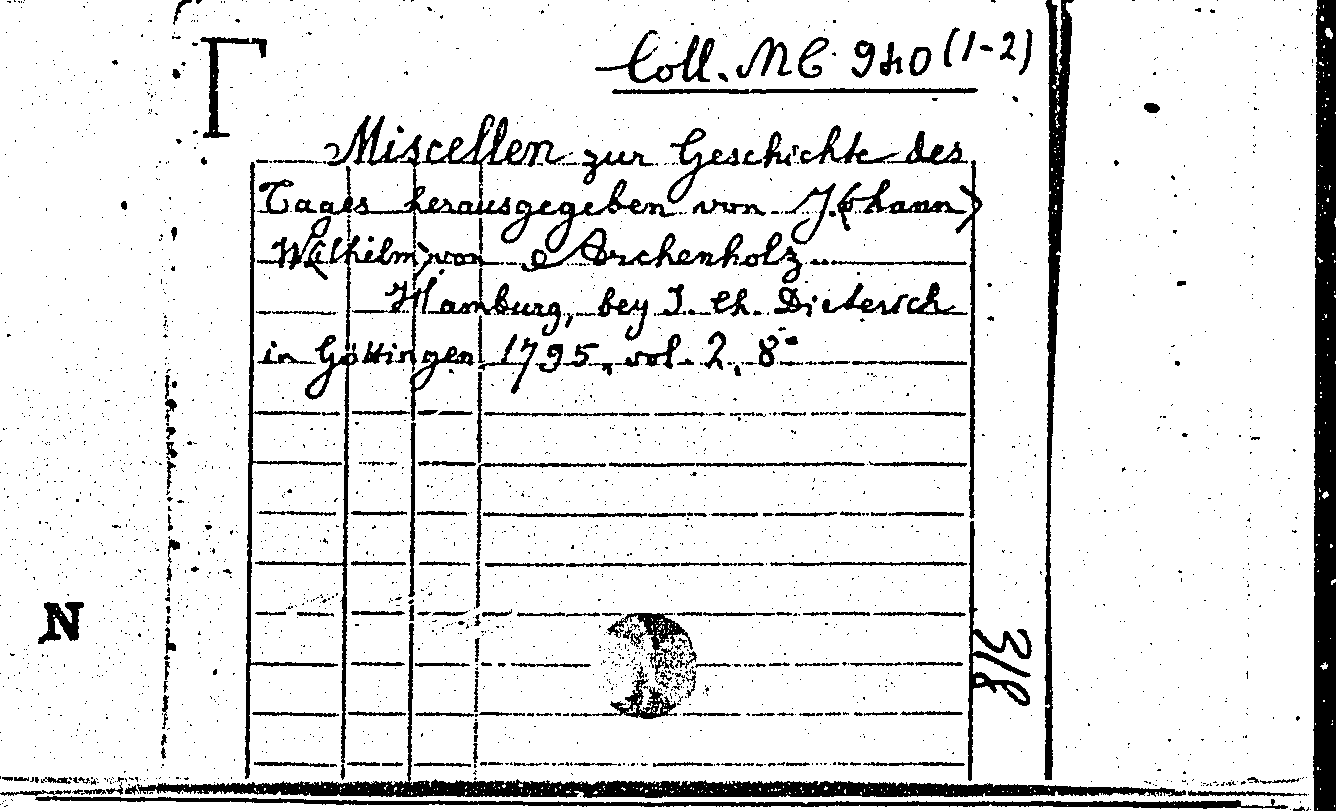 Γ
Coll. MC 940 (1-2)
Miscellen zur Geschichte des
Tages herausgegeben von J.(ohann)
W(ilhelm) von Archenholz..
Hamburg, bey J. Ch. Dieterich
in Göttingen 1795, vol. 2, 8°
N
3/8